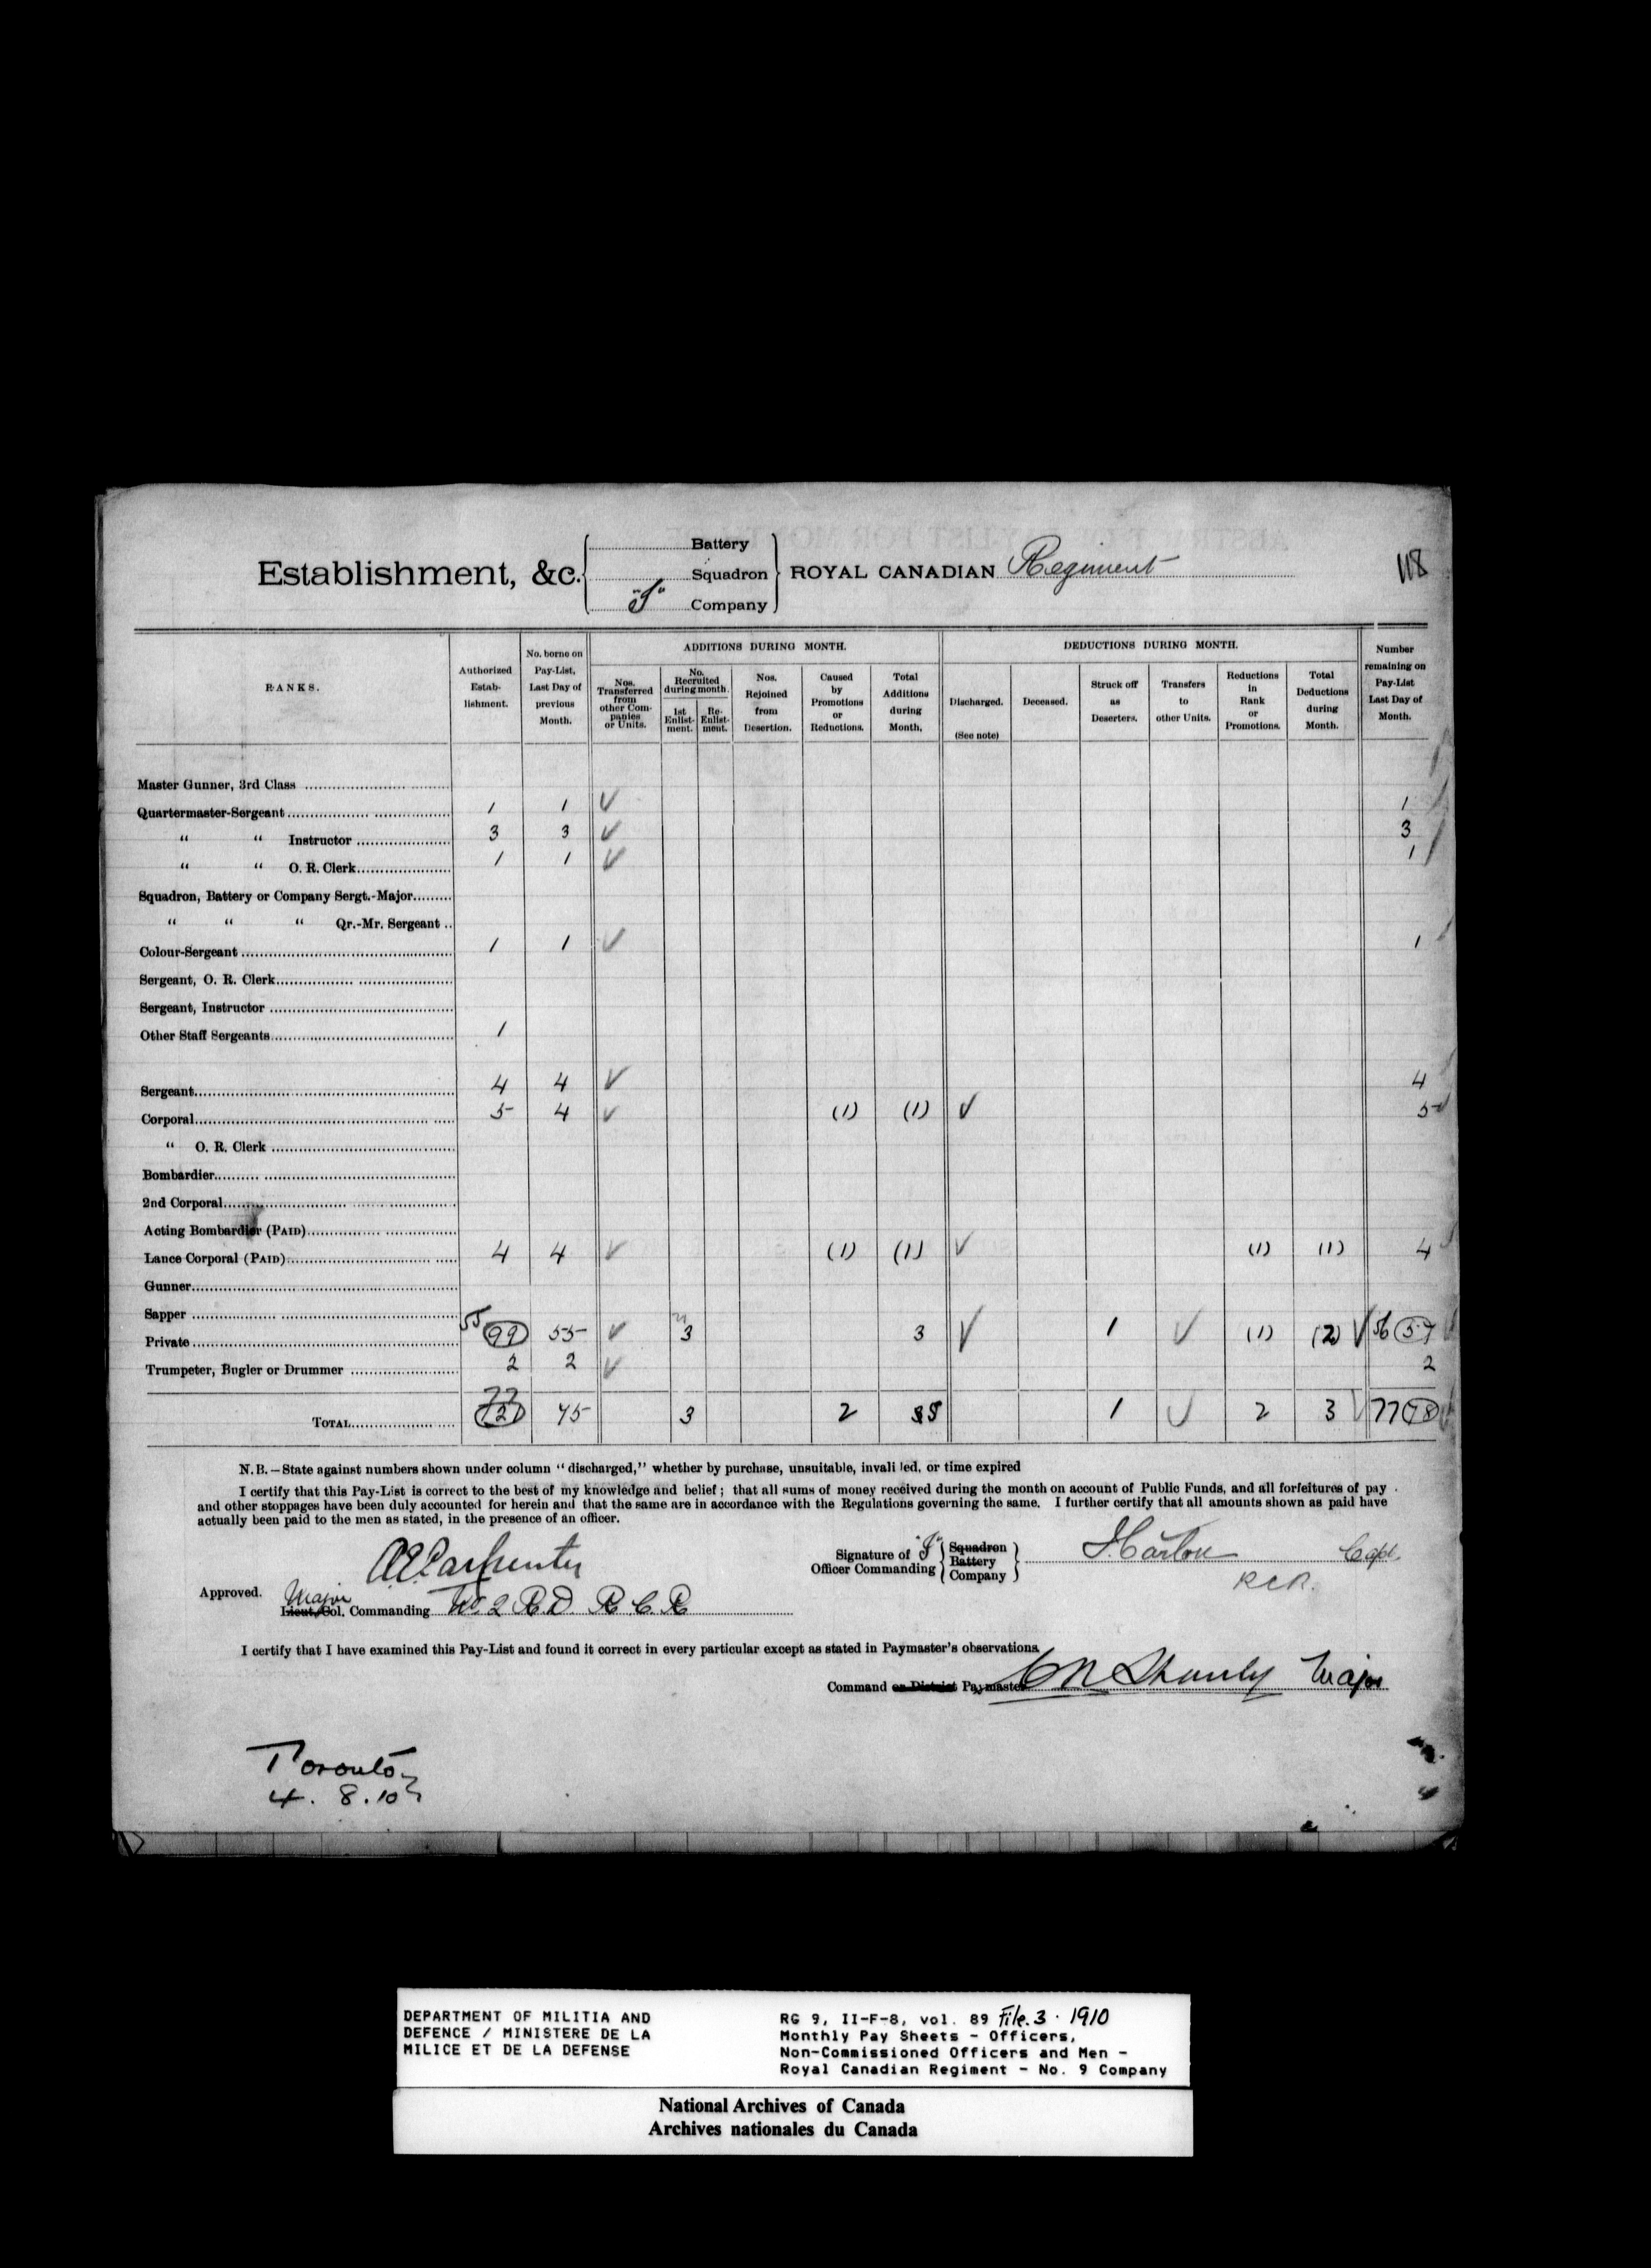 Battery
Establishment, &c. Squadron ROYAL CANADIAN Regiment 118
Company
RANKS.
Authorized Estab-lishment.
No. borne on Pay-List, Last Day of previous Month.
ADDITIONS DURING MONTH.
Nos. Transferred from other Com-panies or Units.
No. Recruited during month.
1st Enlist-ment.
Re-Enlist-ment.
Nos. Rejoined from Desertion.
Caused by Promotions or Reductions.
Total Additions during Month,
DEDUCTIONS DURING MONTH.
Discharged. (See note)
Deceased.
Struck off as Deserters.
Transfers to other Units.
Reductions in Rank or Promotions.
Total Deductions during Month.
Number remaining on Pay-List Last Day of Month.
Master Gunner, 3rd Class
Quartermaster-Sergeant 1 1 ✓ 1
" " Instructor 3 3 ✓ 3
" " O. R. Clerk 1 1 ✓ 1
Squadron, Battery or Company Sergt.-Major
" " " Qr.-Mr. Sergeant
Colour-Sergeant 1 1 ✓ 1
Sergeant, O. R. Clerk
Sergeant, Instructor
Other Staff Sergeants 1
Sergeant 4 4 ✓ 4
Corporal 5 4 ✓ (1) (1) ✓ 5
" O. R. Clerk
Bombardier
2nd Corporal
Acting Bombardier (PAID)
Lance Corporal (PAID) 4 4 ✓ (1) (1) ✓ (1) (1) 4
Gunner
Sapper
Private 55 99 55 ✓ 3 3 ✓ 1 ✓ (1) (2) ✓ 56 57
Trumpeter, Bugler or Drummer 2 2 ✓ 2
TOTAL 77 121 75 3 2 5 1 ✓ 2 3 77 78
N.B.—State against numbers shown under column "discharged," whether by purchase, unsuitable, invali led, or time expired
I certify that this Pay-List is correct to the best of my knowledge and belief; that all sums of money received during the month on account of Public Funds, and all forfeitures of pay
and other stoppages have been duly accounted for herein and that the same are in accordance with the Regulations governing the same. I further certify that all amounts shown as paid have
actually been paid to the men as stated, in the presence of an officer.
A E Carpenter
Signature of Officer Commanding Squadron Battery Company Capt.
RCR.
Approved. Major
Lieut.-Col. Commanding No 2 R.D. R.C.R
I certify that I have examined this Pay-List and found it correct in every particular except as stated in Paymaster's observations.
Command or District Paymaster Shanly Major
Toronto
4. 8. 10
DEPARTMENT OF MILITIA AND
DEFENCE / MINISTERE DE LA
MILICE ET DE LA DEFENSE
RG 9, II-F-8, vol. 89 File. 3 · 1910
Monthly Pay Sheets - Officers,
Non-Commissioned Officers and Men -
Royal Canadian Regiment - No. 9 Company
National Archives of Canada
Archives nationales du Canada